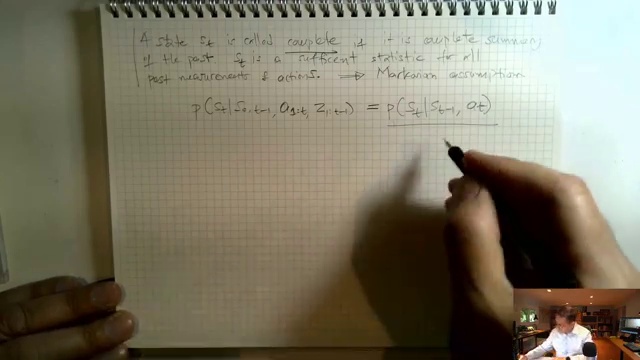 A state st is called complete if it is complete summary
of the past st is a sufficient statistic for all
past measurements & actions. ⟹ Markovian assumption
p(st|s0:t-1, a1:t, z1:t-1) = p(st|st-1, at)